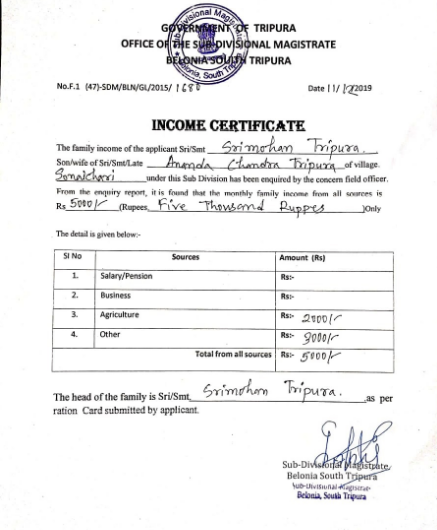 GOVERNMENT OF TRIPURA
OFFICE OF THE SUB-DIVISIONAL MAGISTRATE
BELONIA SOUTH TRIPURA
Sub-Divisional Magistrate
Belonia, South Tripura
No.F.1 (47)-SDM/BLN/GL/2015/ 1680
Date 11/12/2019
INCOME CERTIFICATE
The family income of the applicant Sri/Smt Srimohan Tripura.
Son/wife of Sri/Smt/Late Ananda Chandra Tripura of village.
Sonaichari under this Sub Division has been enquired by the concern field officer.
From the enquiry report, it is found that the monthly family income from all sources is
Rs 5000/- (Rupees, Five Thousand Ruppes )Only
The detail is given below:-
Sl No Sources Amount (Rs)
1. Salary/Pension Rs:-
2. Business Rs:-
3. Agriculture Rs:- 2000/-
4. Other Rs:- 3000/-
Total from all sources Rs:- 5000/-
The head of the family is Sri/Smt, Srimohan Tripura. as per
ration Card submitted by applicant.
Sub-Divisional Magistrate
Belonia South Tripura
Sub-Divisional Magistrate
Belonia, South Tripura